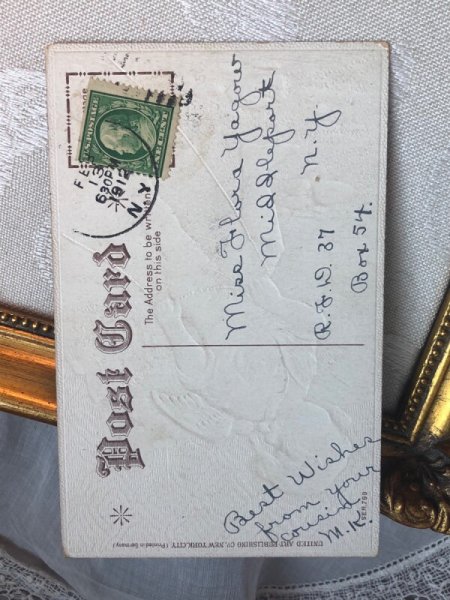 Post Card
The Address to be written
on this side
U.S. POSTAGE
FEB
13
630PM
1912
N.Y.
Miss Flora Yagow
Middleport
N.Y.
R.F.D. 37
Box 54.
Best Wishes
from your
cousin
M.K.
UNITED ART PUBLISHING CO. NEW YORK CITY (Printed in Germany)